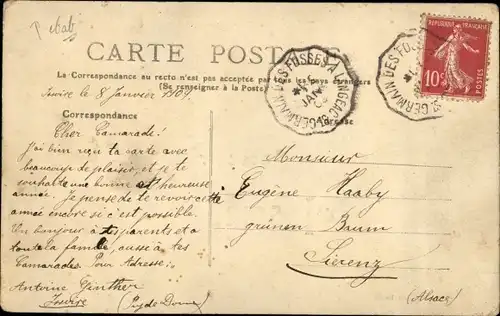 CARTE POSTALE
La Correspondance au recto n'est pas acceptée par tous les pays étrangers
(Se renseigner à la Poste)
Issoire le 8 Janvier 1909.
Correspondance
Adresse
Cher Camarade!
J'ai bien reçu ta carte avec
beaucoup de plaisir, et je te
souhaite une bonne et heureuse
année. Je pense de te revoir cette
année encore si c'est possible.
Un bonjour à tes parents et a
toute la famille, aussi à tes
Camarades. Pour Adresse:
Antoine Ginther
Issoire (Puy de Dome)
Monsieur
Eugène Haaby
grünen Baum
Sierenz
(Alsace)
ST GERMAIN DES FOSSES A LANGEAC
JANV
RÉPUBLIQUE FRANÇAISE
10c
POSTES